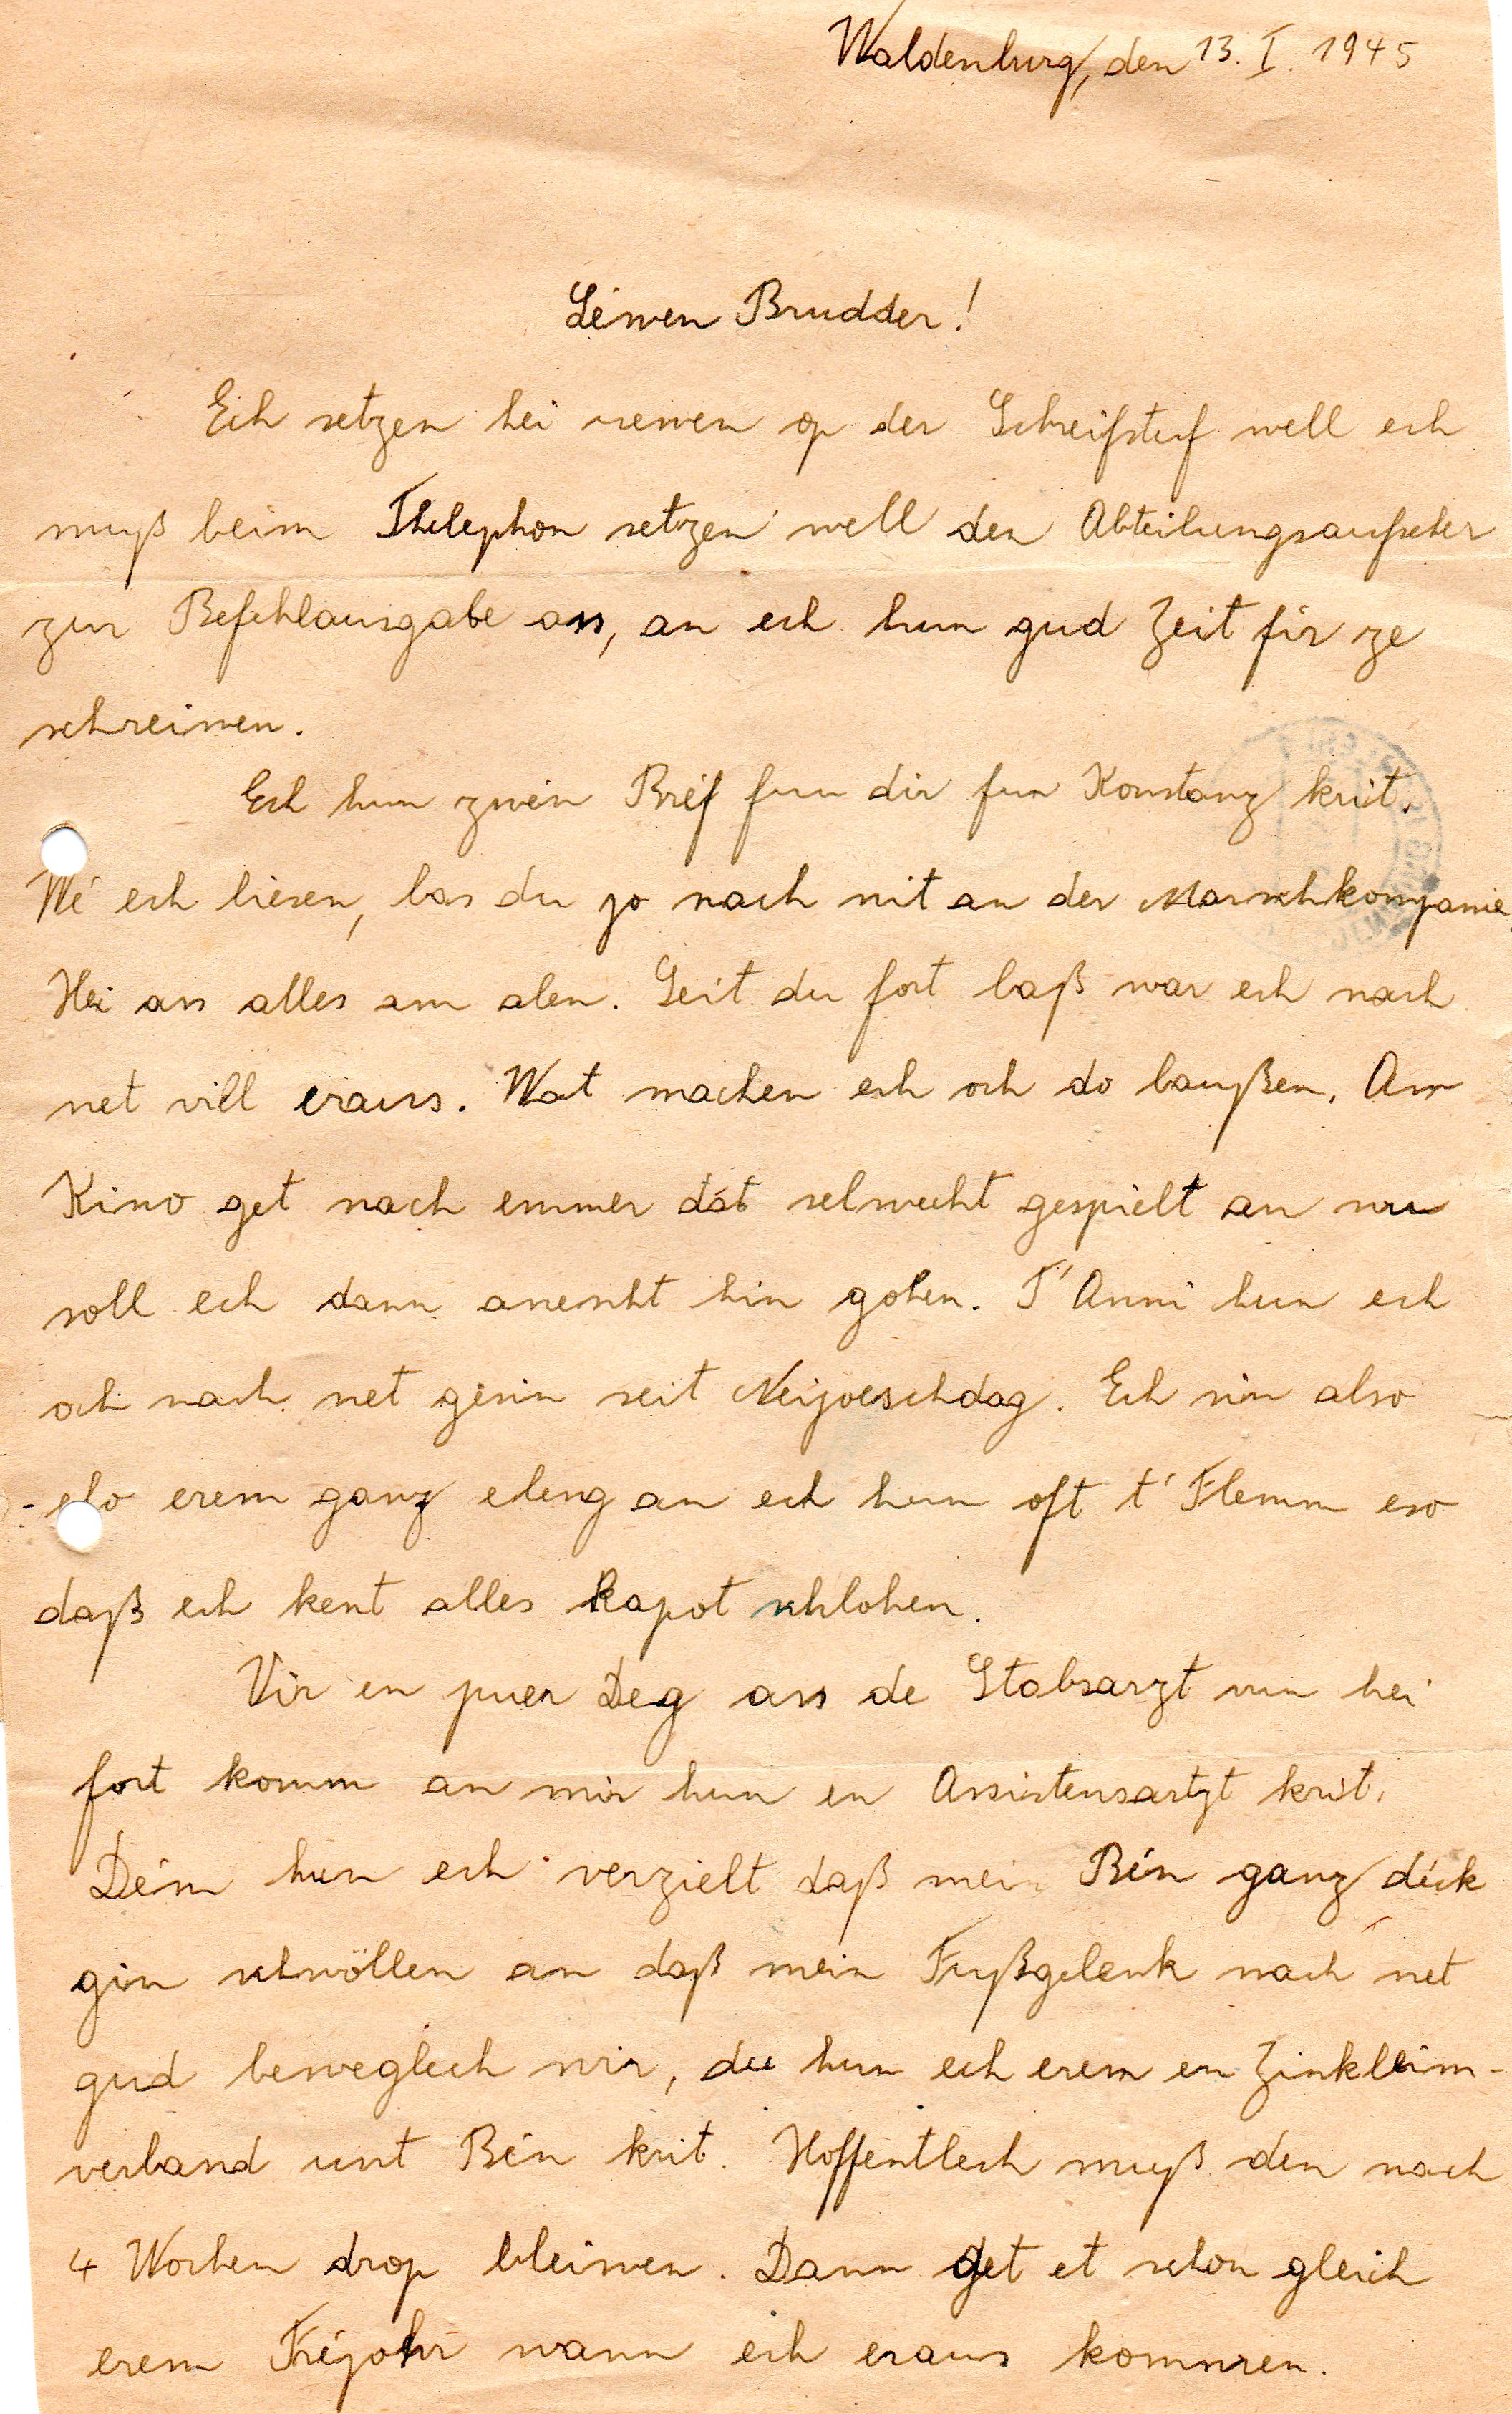 Waldenburg, den 13. I. 1945
Léiwen Brudder!
Ech setzen hei uewen op der Schreifstuf well ech
muß beim Thelephon setzen well den Abteilungsaufseher
zur Befehlausgabe ass, an ech hun gud Zeit fir ze
schreiwen.
Ech hun zwéin Bréf fun dir fun Konstanz krüt.
Wé ech liesen, bas du jo nach nit an der Marschkompanie
Hei ass alles am alen. Seit du fort baß war ech nach
net vill eraus. Wat machen ech och do baußen. Am
Kino get nach emmer dát selwecht gespielt an wu
soll ech dann anescht hin gohen. T' Anni hun ech
och nach net gesin seit Neijoeschdag. Ech sin also
elo erem ganz eleng an ech hun oft t' Flemm eso
daß ech kent alles kapot schlohen.
Vir en puer Deg ass de Stabsarzt vun hei
fort komm an mir hun en Assistensartzt krit.
Dém hun ech verzielt daß mein Bén ganz déck
gin schwöllen an daß mein Fußgelenk nach net
gud beweglech wir, du hun ech erem en Zinkleim-
verband unt Bén krit. Hoffentlech muß den nach
4 Wochen drop bleiwen. Dann get et schon gleich
erem Fréjohr wann ech eraus kommen.